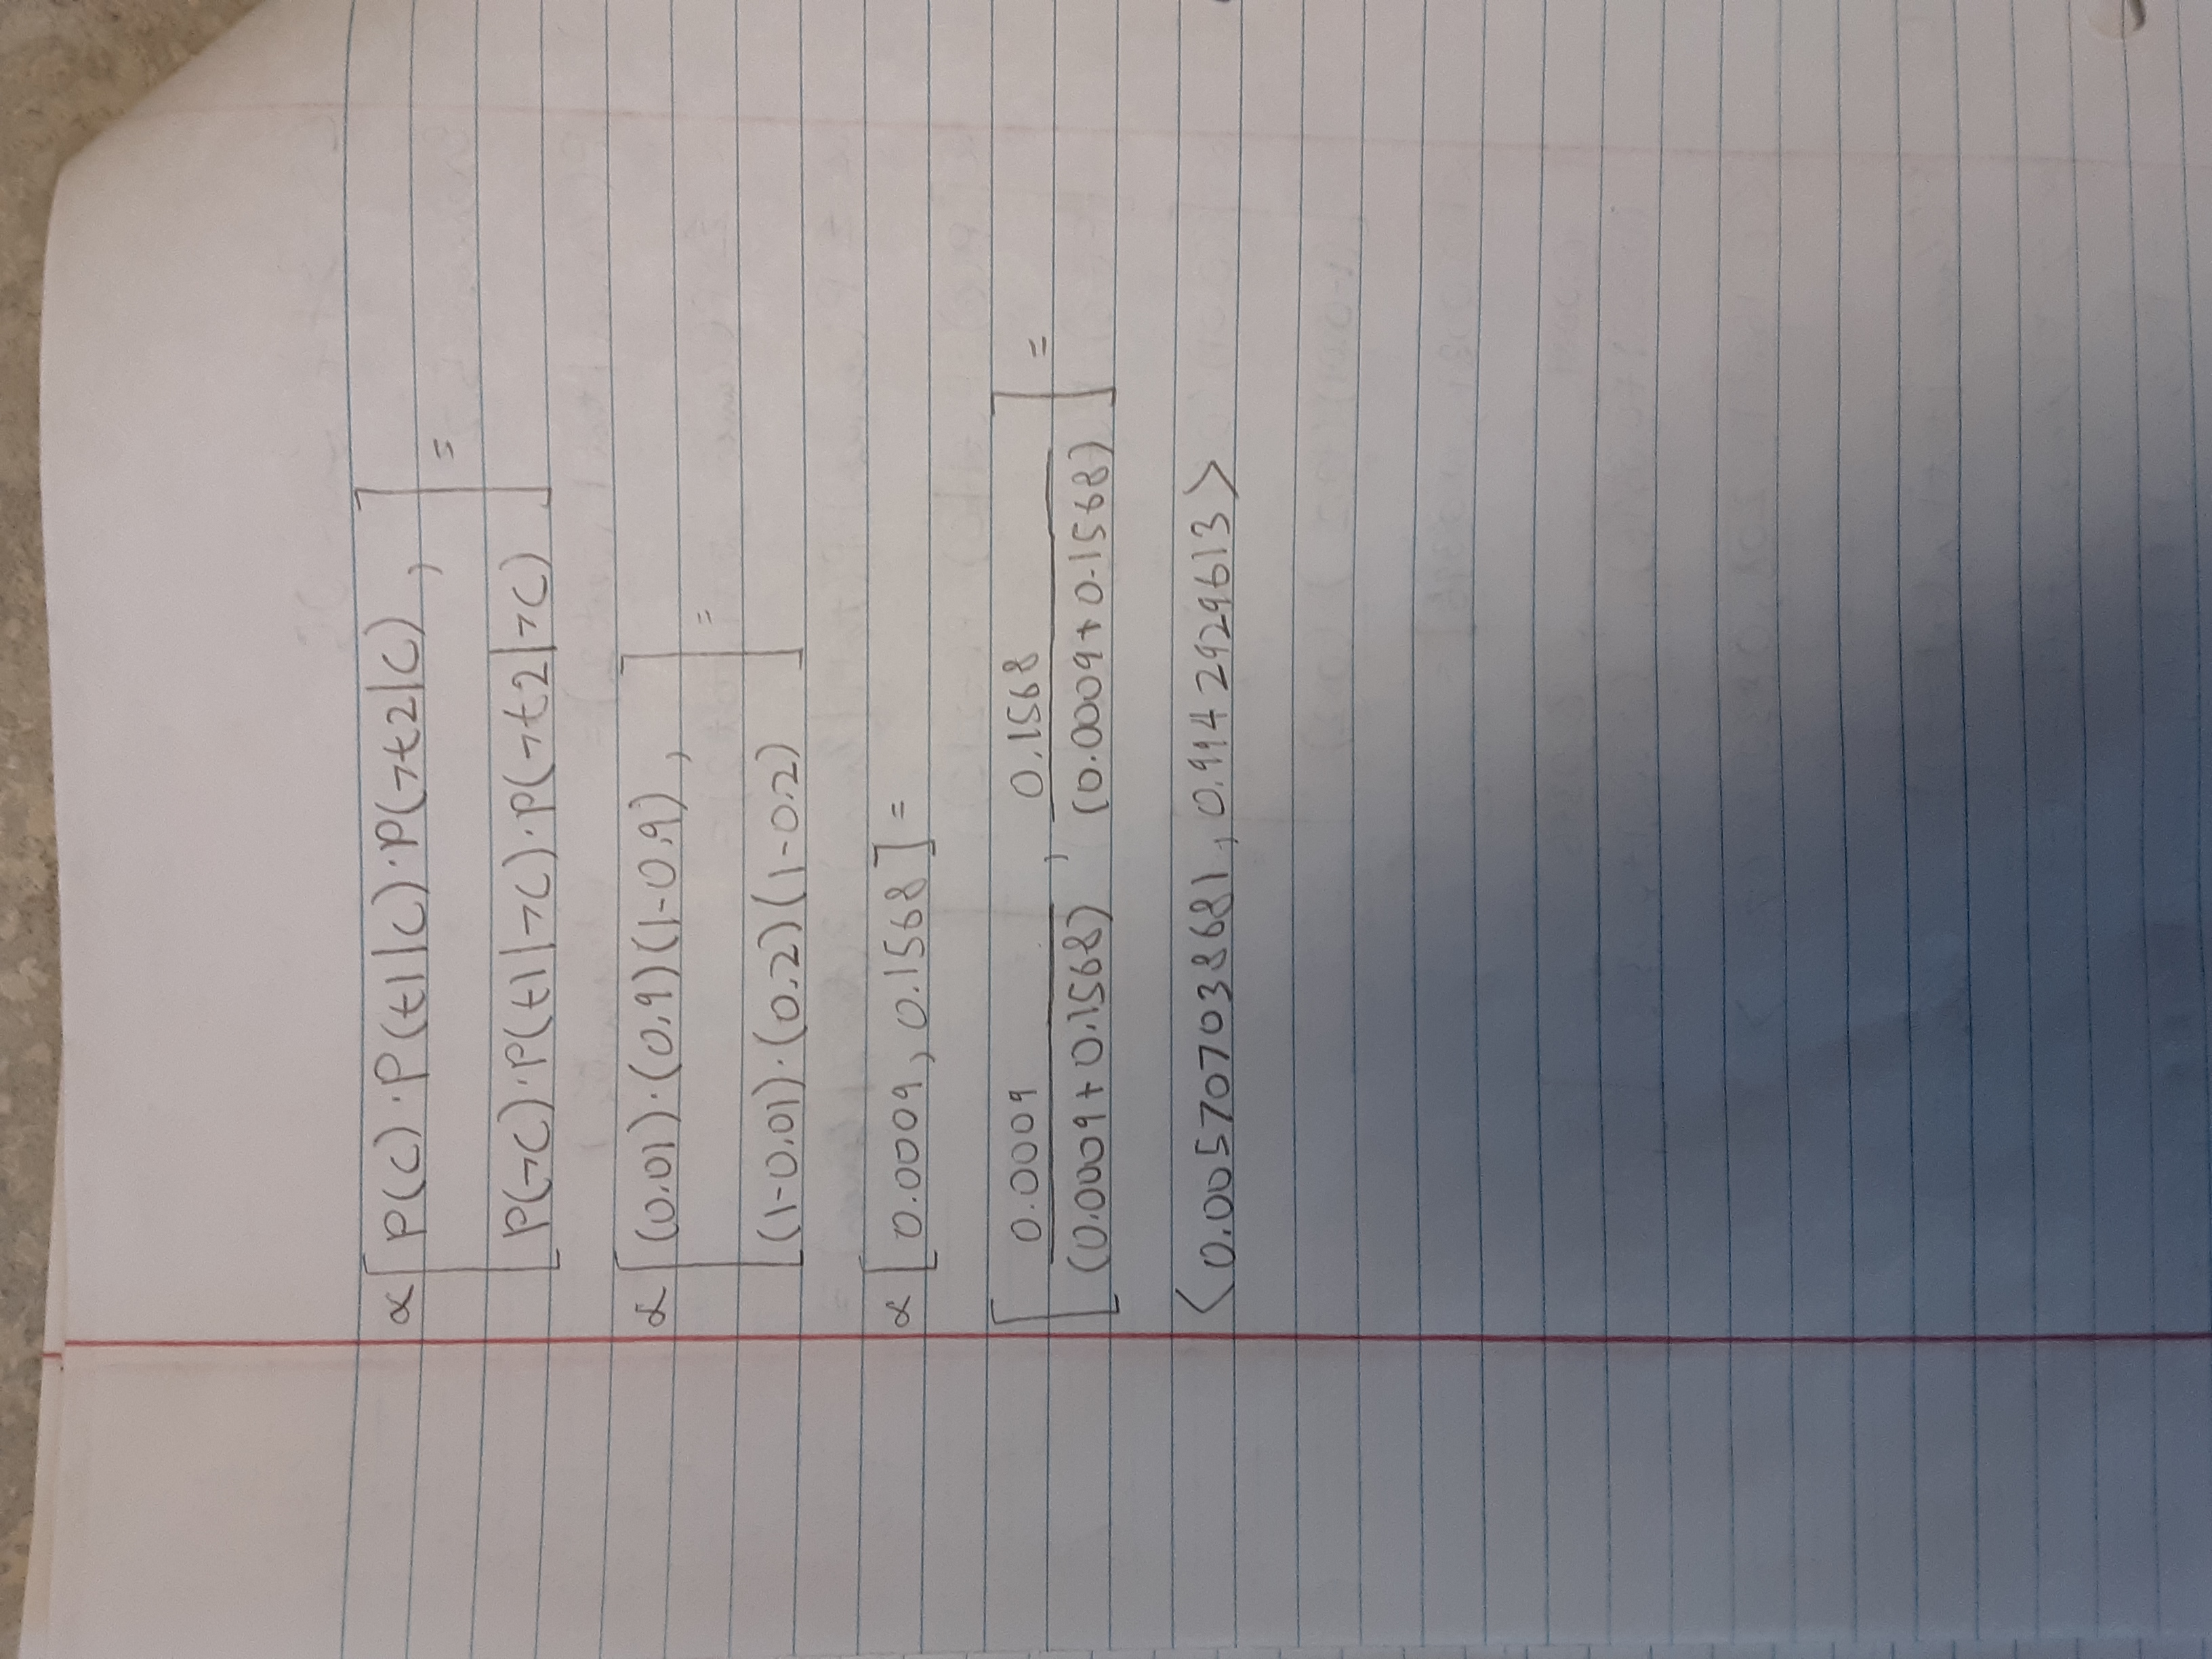 ∝ [ P(C) · P(t1|C) · P(¬t2|C) ,
P(¬C) · P(t1|¬C) · P(¬t2|¬C) ] =
∝ [ (0.01) · (0.9)(1-0.9) ,
(1-0.01) · (0.2)(1-0.2) ] =
∝ [ 0.0009, 0.1568 ] =
[ 0.0009 / (0.0009 + 0.1568) , 0.1568 / (0.0009 + 0.1568) ] =
<0.005707038681, 0.9942929613>